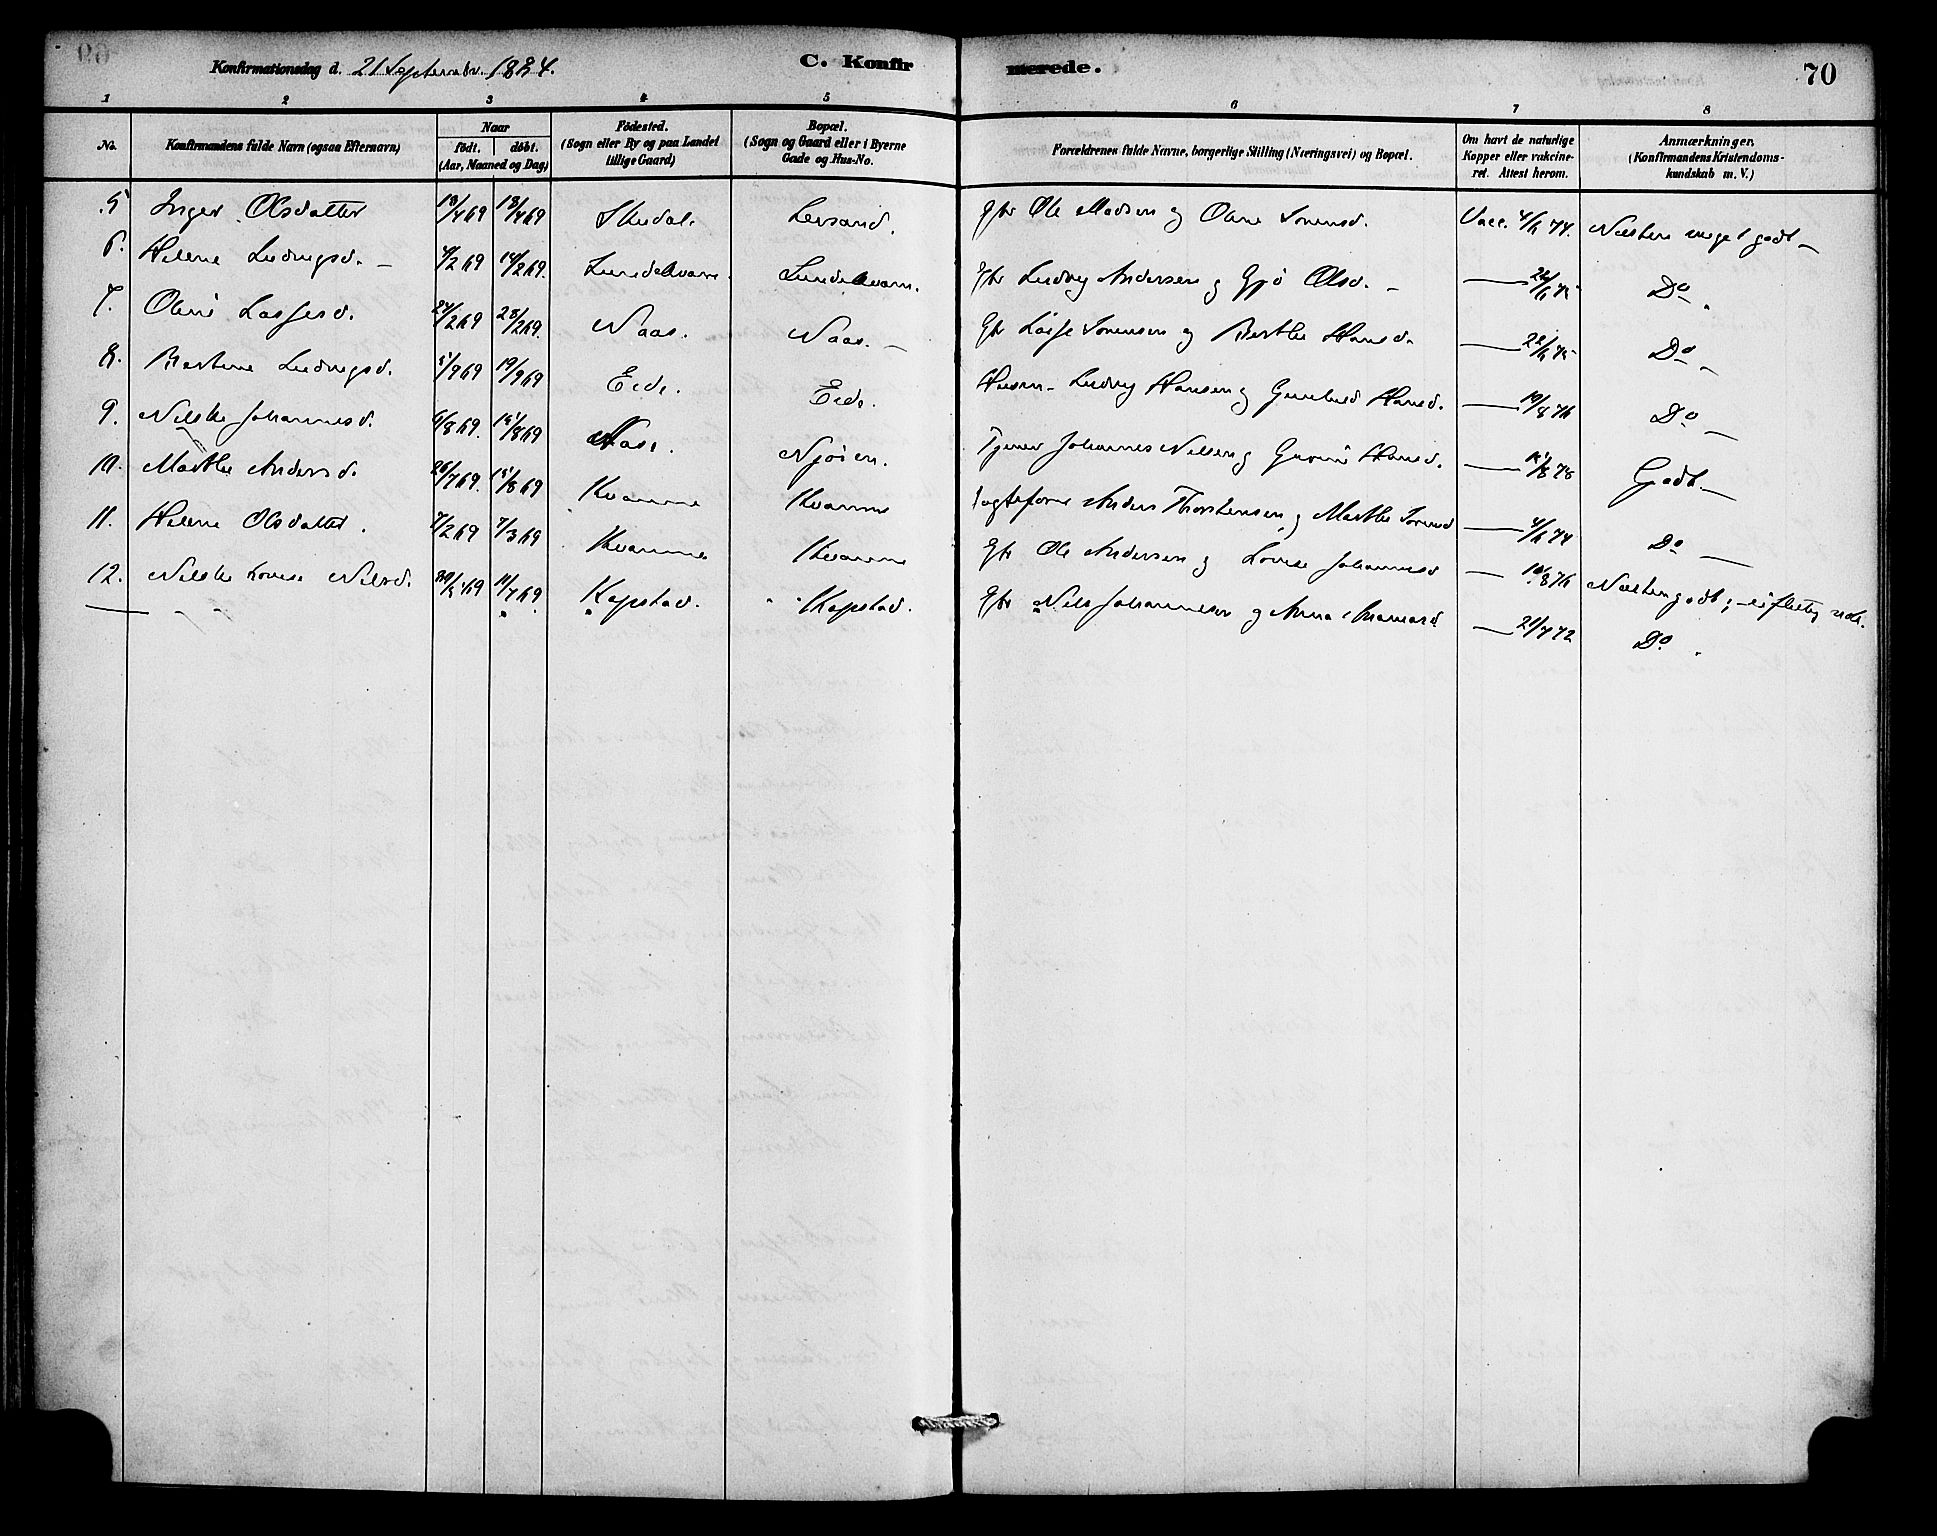 Konfirmationsdag d. 21 Septembr. 1884.
C. Konfirmerede.
70
1 2 3 4 5 6 7 8
No.
Konfirmandens fulde Navn (ogsaa Efternavn)
Naar
født. døbt.
(Aar, Maaned og Dag)
Födested.
(Sogn eller By og paa Landet
tillige Gaard)
Bopæl.
(Sogn og Gaard eller i Byerne
Gade og Hus-No.
Forældrenes fulde Navne, borgerlige Stilling (Næringsvei) og Bopæl.
Om havt de naturlige
Kopper eller vakcine-
ret. Attest herom.
Anmærkninger,
(Konfirmandens Kristendoms-
kundskab m. V.)
5 Inger Olsdatter 18/4 69 18/4 69 Leirsand. Gbr Ole Madsen og Oline Sorensd. Vacc. 4/6 74. Næsten meget godt
6. Helene Ludvigsd. 4/2 69 14/2 69. Lundekvam. Lundekvam. Gbr Ludvig Andersen og Gjø Olsd. Do
7. Oline Lassesd. 24/2 69 28/2 69. Naas. Naas. Gbr Lasse Sorensen og Berthe Hansd. Do
8. Bertine Ludvigsd. 5/9 69 19/9 69 Eide. Eide. Husm. Ludvig Hansen og Gunhild Hansd. 19/8 76 Do
9. Nilske Johannesd. 6/8 69. 15/8 69 Naas. Njøien. Tjener Johannes Nilsen og Hansd. Godt
10. Marthe Andersd. 26/7 69. 15/8 69 Kvamme Kvamme Anders Thorstensen og Marthe Sorensd 4/6 74 Do
11. Helene Olsdatter. 7/2 69 7/3 69 Kvamme Kvamme Gbr Ole Andersen og Lovise Johannesd 19/8 76 Næsten godt;
12. Nilske Lovise Nilsd. 11/7 69 Kopstad. Kopstad. Gbr Nils Johannesen og Anna 21/7 72 Do